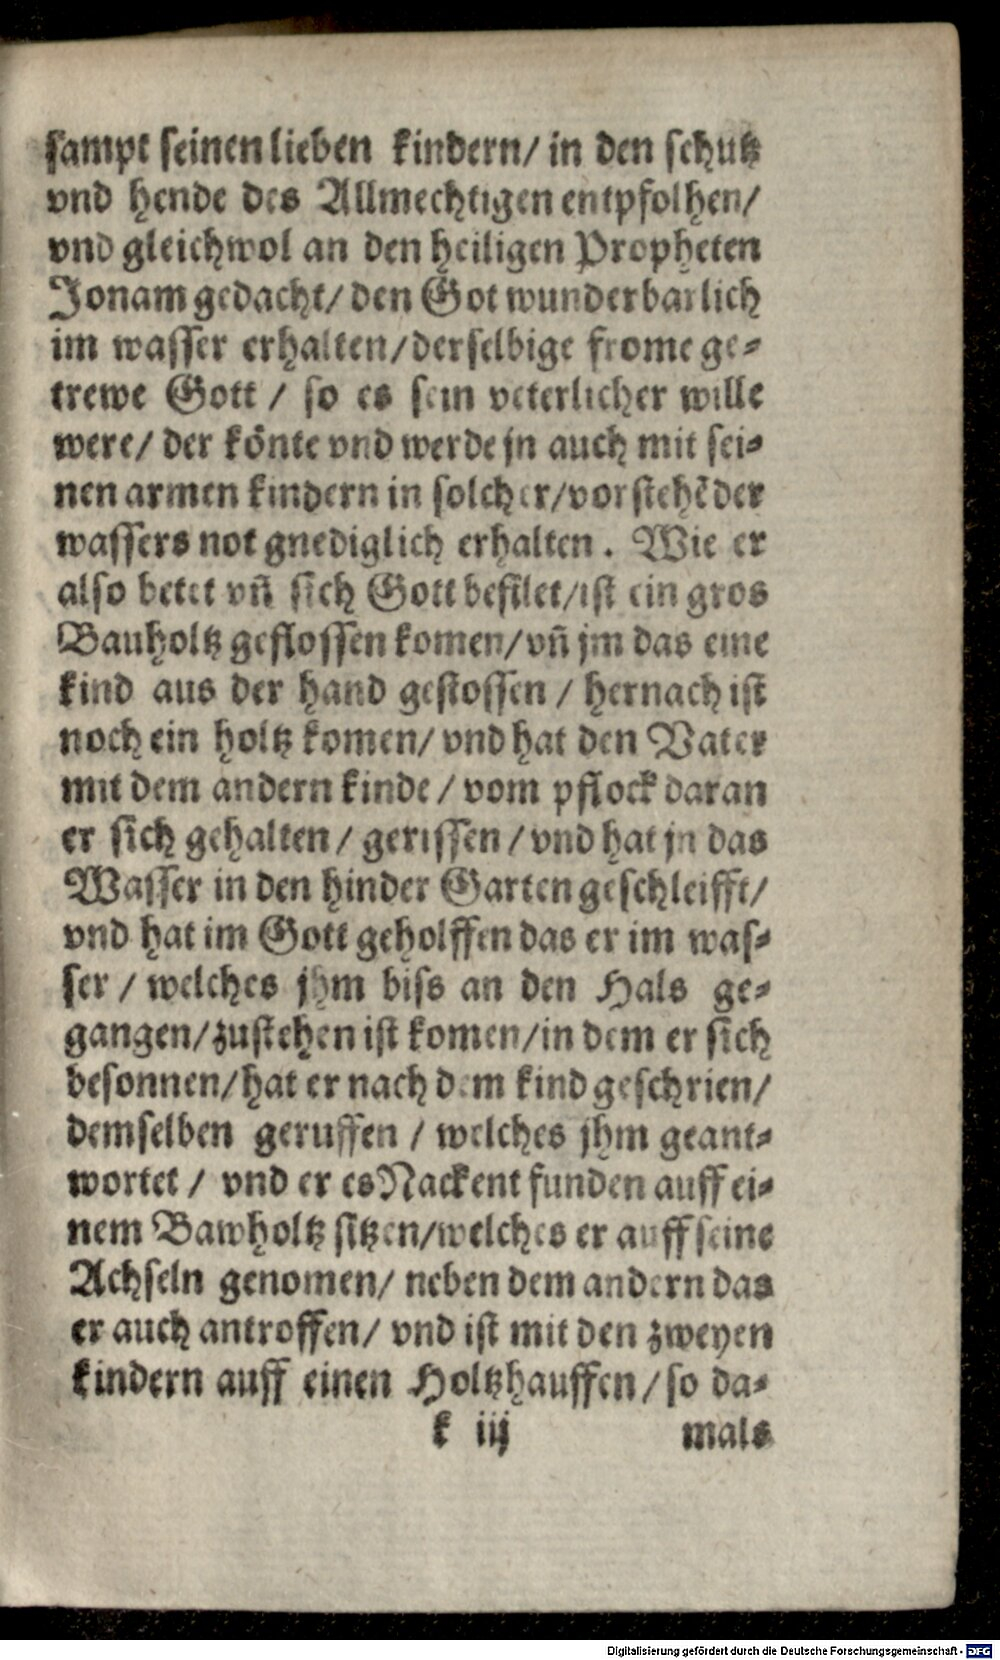 sampt seinen lieben kindern/ in den schutz
vnd hende des Allmechtigen entpfolhen/
vnd gleichwol an den heiligen Propheten
Jonam gedacht/ den Got wunderbarlich
im wasser erhalten/derselbige frome ge-
trewe Gott / so es sein veterlicher wille
were/ der könte vnd werde jn auch mit sei-
nen armen kindern in solcher/vorstehẽder
wassers not gnediglich erhalten. Wie er
also betet vn̄ sich Gott befilet/ist ein gros
Bauholtz geflossen komen/vn̄ jm das eine
kind aus der hand gestossen / hernach ist
noch ein holtz komen/ vnd hat den Vater
mit dem andern kinde / vom pflock daran
er sich gehalten / gerissen / vnd hat jn das
Wasser in den hinder Garten geschleifft/
vnd hat im Gott geholffen das er im was-
ser / welches jhm biss an den Hals ge-
gangen/zustehen ist komen/in dem er sich
besonnen/hat er nach dem kind geschrien/
demselben geruffen / welches jhm geant-
wortet / vnd er es Nackent funden auff ei-
nem Bawholtz sitzen/welches er auff seine
Achseln genomen/ neben dem andern das
er auch antroffen/ vnd ist mit den zweyen
kindern auff einen Holtzhauffen/ so da-
k iij mals
Digitalisierung gefördert durch die Deutsche Forschungsgemeinschaft - DFG